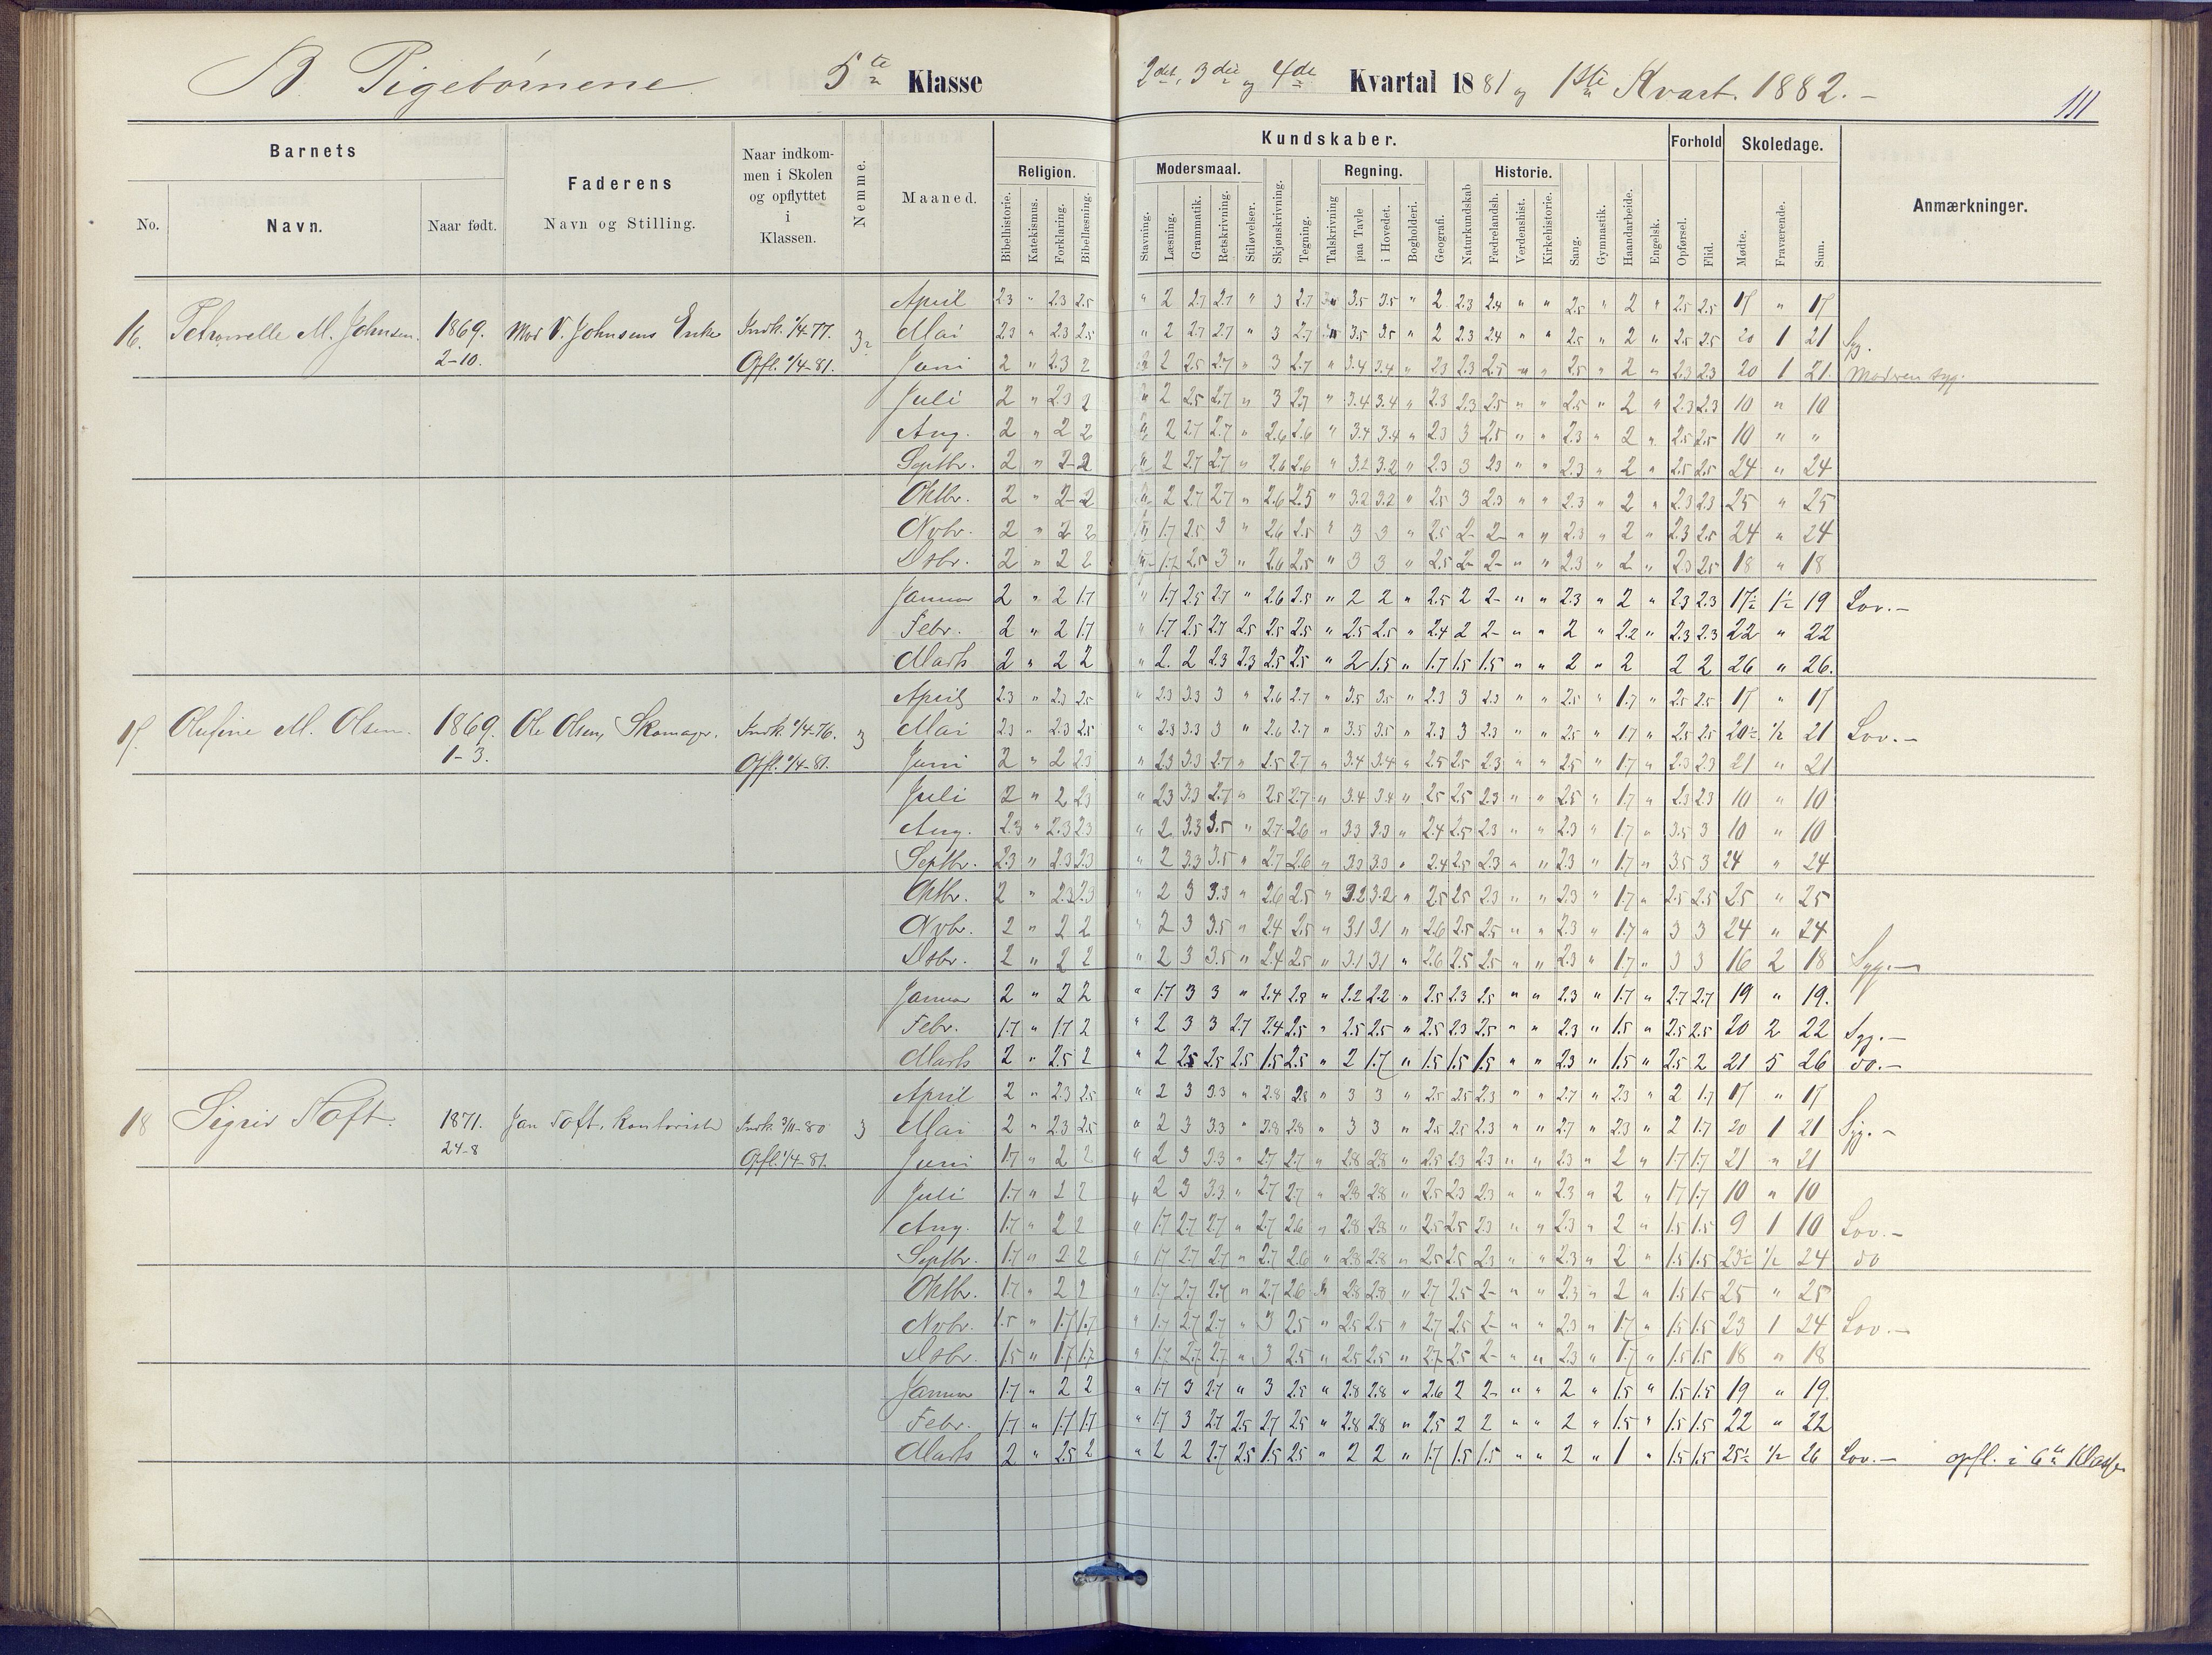 B. Pigebørnene. 5te Klasse
2det, 3die og 4de Kvartal 1881 og 1ste Kvart. 1882.-
111
Barnets
No.
Navn.
Naar født.
Faderens
Navn og Stilling.
Naar indkom-
men i Skolen
og opflyttet
i
Klassen.
Nemme.
Maaned.
Kundskaber.
Religion.
Bibelhistorie.
Katekismus.
Forklaring.
Bibellæsning.
Modersmaal.
Stavning.
Læsning.
Grammatik.
Retskrivning.
Stiløvelser.
Skjønskrivning.
Tegning.
Regning.
Talskrivning
paa Tavle
i Hovedet.
Bogholderi.
Geografi.
Naturkundskab
Historie.
Fædrelandsh.
Verdenshist.
Kirkehistorie.
Sang.
Gymnastik.
Haandarbeide.
Engelsk.
Forhold
Opførsel.
Flid.
Skoledage.
Mødte.
Fraværende.
Sum.
Anmærkninger.
16. M. Johnsen. 1869. 2-10. Mod V. Johnsens Enke Indk. 1/4-77. Opfl. 1/4-81.
April 2.3 " 2.3 2.5 " 2 2.7 2.7 " 3 2.7 3.5 3.5 " 2 2.3 2.4 " " 2.5 " 2 " 2.5 2.5 17 " 17
Mai 2.3 " 2.3 2.5 " 2 2.7 2.7 " 3 2.7 " 3.5 3.5 " 2 2.3 2.4 " " 2.5 " 2 " 2.5 2.5 20 1 21 Syg.
Juni 2 " 2.3 2 2 2.5 2.7 " 3 2.7 " 3.4 3.4 " 2.3 2.3 2.5 " " 2.5 " 2 " 2.3 2.3 20 1 21. Modren syg.
Juli 2 " 2.3 2 " 2 2.5 2.7 " 3 2.7 " 3.4 3.4 " 2.3 2.3 2.5 " " 2.5 " 2 " 2.3 2.3 10 " 10
Aug. 2 " 2 2 " 2 2.7 2.7 " 2.6 2.6 " 3.4 3.4 " 2.3 3 2.5 " " 2.3 " 2 " 2.5 2.5 10 " "
Septbr. 2 " 2 2 " 2 2.7 2.7 " 2.6 2.6 " 3.2 3.2 " 2.3 3 2.3 " " 2.3 " 2 " 2.5 2.5 24 " 24
Oktbr. 2 " 2 2 " 2 2.7 2.7 " 2.6 2.5 " 3.2 3.2 " 2.5 3 2.3 " " 2.3 " 2 " 2.3 2.3 25 " 25
Novbr. 2 " 2 2 " 1.7 2.5 3 " 2.6 2.5 " 3 3 " 2.5 2 2 " " 2.3 " 2 " 2.3 2.5 24 " 24
Dsbr. 2 " 2 2 " 1.7 2.5 3 " 2.6 2.5 " 3 3 " 2.5 2 2 " " 2.3 " 2 " 2.3 2.5 18 " 18
Januar 2 " 2 1.7 " 1.7 2.5 2.7 " 2.6 2.5 " 2 2 " 2.5 2 2 " " 2.3 " 2 " 2.3 2.3 17½ 1½ 19 Lov.-
Febr. 2 " 2 1.7 " 1.7 2.5 2.7 2.5 2.5 2.5 " 2.5 2.5 " 2.4 2 2 " " 2 " 2.2 " 2.3 2.3 22 " 22
Marts 2 " 2 2 " 2. 2 2.3 2.3 2.5 2.5 " 2 1.5 " 1.7 1.5 1.5 " " 2 " 2 2 2 26 " 26.
17. Olufine M. Olsen. 1869. 1-3. Ole Olsen, Skomager. Indk. 1/4-76. Opfl. 1/4-81. 3
April 2.3 " 2.3 2.5 " 2.3 3.3 3 " 2.6 2.7 " 3.5 3.5 " 2.3 3 2.3 " " 2.5 " 1.7 " 2.5 2.5 17 " 17
Mai 2.3 " 2.3 2.5 " 2.3 3.3 3 " 2.6 2.7 " 3.5 3.5 " 2.3 3 2.3 " " 2.5 " 1.7 " 2.5 2.5 20½ ½ 21 Lov.-
Juni 2 " 2 2.3 " 2.3 3.3 2.7 " 2.5 2.7 " 3.4 3.4 " 2.5 2.5 2.3 " " 2.5 " 1.7 " 2.3 2.3 21 " 21
Juli 2 " 2 2.3 " 2.3 3.3 2.7 " 2.5 2.7 " 3.4 3.4 " 2.5 2.5 2.3 " " 2.5 " 1.7 " 2.3 2.3 10 " 10
Aug. 2.3 " 2.3 2.3 " 2 3.3 3.5 " 2.7 2.6 " 3.3 3.3 " 2.4 2.5 2.3 " " 2.3 " 1.7 " 3.5 3 10 " 10
Septbr. 2.3 " 2.3 2.3 " 2 3.3 3.5 " 2.7 2.6 " 3.3 3.3 " 2.4 2.5 2.3 " " 2.3 " 1.7 " 3.5 3 24 " 24
Oktbr. 2 " 2.3 2.3 " 2 3 3.3 " 2.6 2.5 " 3.2 3.2 " 2.5 2.5 2.3 " " 2.3 " 1.7 " 2.5 2.5 25 " 25
Novbr. 2 " 2 2 " 2 3 3.5 " 2.4 2.5 " 3.1 3.1 " 2.6 2.5 2.5 " " 2.3 " 1.7 " 3 3 24 " 24
Dsbr. 2 " 2 2 " 2 3 3.5 " 2.4 2.5 " 3.1 3.1 " 2.6 2.5 2.5 " " 2.3 " 1.7 " 3 3 16 2 18 Syg.-
Januar 2 " 2 2 " 1.7 3 3 " 2.4 2.5 " 2.2 2.2 " 2.5 2.3 2.5 " " 2.3 " 1.7 " 2.7 2.7 19 " 19.
Febr. 1.7 " 1.7 2 " 2 3 3 2.7 2.4 2.5 " 2.5 2.5 " 2.5 2.3 2.5 " " 2.3 " 1.5 " 2.5 2.5 20 2 22 Syg.-
Marts 2 " 2.5 2 " 2 2.5 2.5 2.5 1.5 2.5 " 2 1.7 " 1.5 1.5 1.5 " " 2.3 " 1.5 " 2.5 2 21 5 26 do.-
18 Sigrid Toft. 1871. 24-8 Jan Toft, Kontorist Indk. 3/11-80 Opfl. 1/4-81. 3
April 2 " 2.3 2.5 " 2 3 3.3 " 2.8 2.8 " 3 3 " 2.5 2.5 2.3 " " 2.7 " 2.3 " 2 1.7 17 " 17
Mai 2 " 2.3 2.5 " 2 3 3.3 " 2.8 2.8 " 3 3 " 2.5 2.5 2.3 " " 2.7 " 2.3 " 2 1.7 20 1 21 Syg.-
Juni 1.7 " 2 2 " 2 3 3.3 " 2.7 2.7 " 2.8 2.8 " 2.5 2.3 2.3 " " 2.3 " 2 " 1.7 1.7 21 " 21
Juli 1.7 " 2 2 " 2 3 3.3 " 2.7 2.7 " 2.8 2.8 " 2.5 2.3 2.3 " " 2.3 " 2 " 1.7 1.7 10 " 10
Aug. 1.7 " 2 2 " 1.7 2.7 2.7 " 2.7 2.6 " 2.8 2.8 " 2.5 2.5 2.3 " " 2.3 " 2 " 1.5 1.5 9 1 10 Lov.-
Septbr. 1.7 " 2 2 " 1.7 2.7 2.7 " 2.7 2.6 " 2.8 2.8 " 2.5 2.5 2.3 " " 2.3 " 2 " 1.5 1.5 23½ ½ 24 do
Oktbr. 1.7 " 2 2 " 1.7 2.7 2.7 " 2.7 2.6 2.8 2.8 " 2.7 2.5 2 " " 2.3 " 2 " 1.5 1.5 25 " 25
Novbr. 1.5 " 1.7 1.7 " 1.7 2.7 2.7 " 3 2.5 " 2.5 2.5 " 2.7 2.5 2 " " 2.3 " 1.7 " 1.5 1.5 23 1 24 Lov.-
Dsbr. 1.5 " 1.7 1.7 " 1.7 2.7 2.7 " 3 2.5 " 2.5 2.5 " 2.7 2.5 2 " " 2.3 " 1.7 " 1.5 1.5 18 " 18
Januar 1.7 " 2 2 " 1.7 3 2.7 " 3 2.5 " 2.8 2.8 " 2.6 2 2 " " 2 " 1.5 " 1.5 1.5 19 " 19.
Febr. 1.7 " 1.7 1.7 " 1.7 3 2.7 2.5 2.7 2.5 " 2.8 2.8 " 2.5 2 2 " " 2 " 1.5 " 1.5 1.5 22 " 22
Marts 2 " 2.5 2 " 2 2 2.7 2.5 1.5 2.5 " 2 2 " 1.7 1.5 1.5 " " 2 " 1 " 1.5 1.5 25½ ½ 26 Lov.- opfl. i 6te Klasse